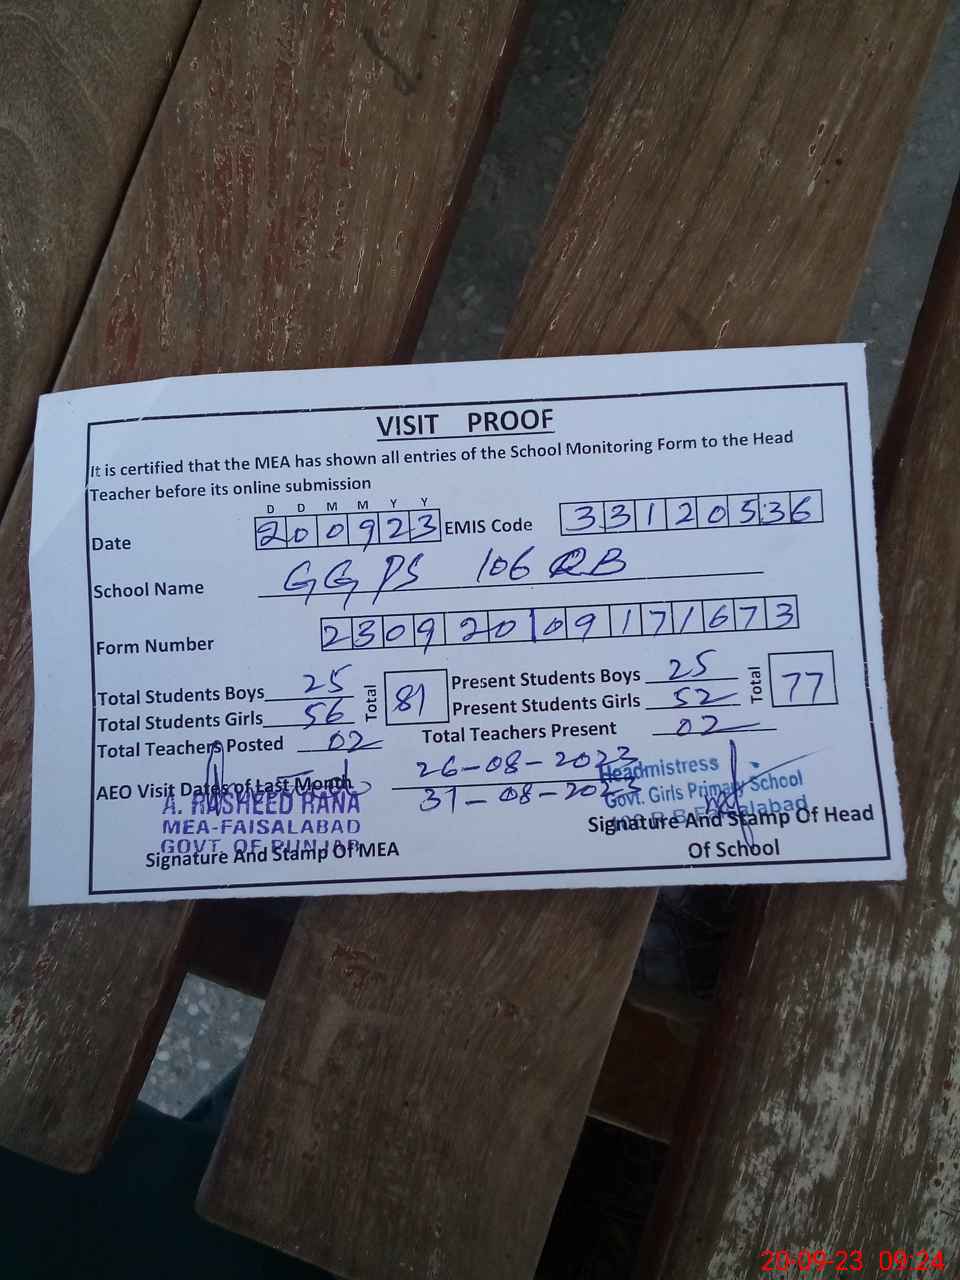 VISIT PROOF
It is certified that the MEA has shown all entries of the School Monitoring Form to the Head
Teacher before its online submission
D D M M Y Y
Date 200923 EMIS Code 33120536
School Name GGPS 106 RB
Form Number 230920109171673
Total Students Boys 25 Total 81 Present Students Boys 25 Total 77
Total Students Girls 56 Present Students Girls 52
Total Teachers Posted 02 Total Teachers Present 02
AEO Visit Dates of Last Month 26-08-2023
31-08-2023
A. RASHEED RANA
MEA-FAISALABAD
GOVT. OF PUNJAB
Signature And Stamp Of MEA
Headmistress
Govt. Girls Primary School
R.B Faisalabad
Signature And Stamp Of Head
Of School
20-09-23 09:24